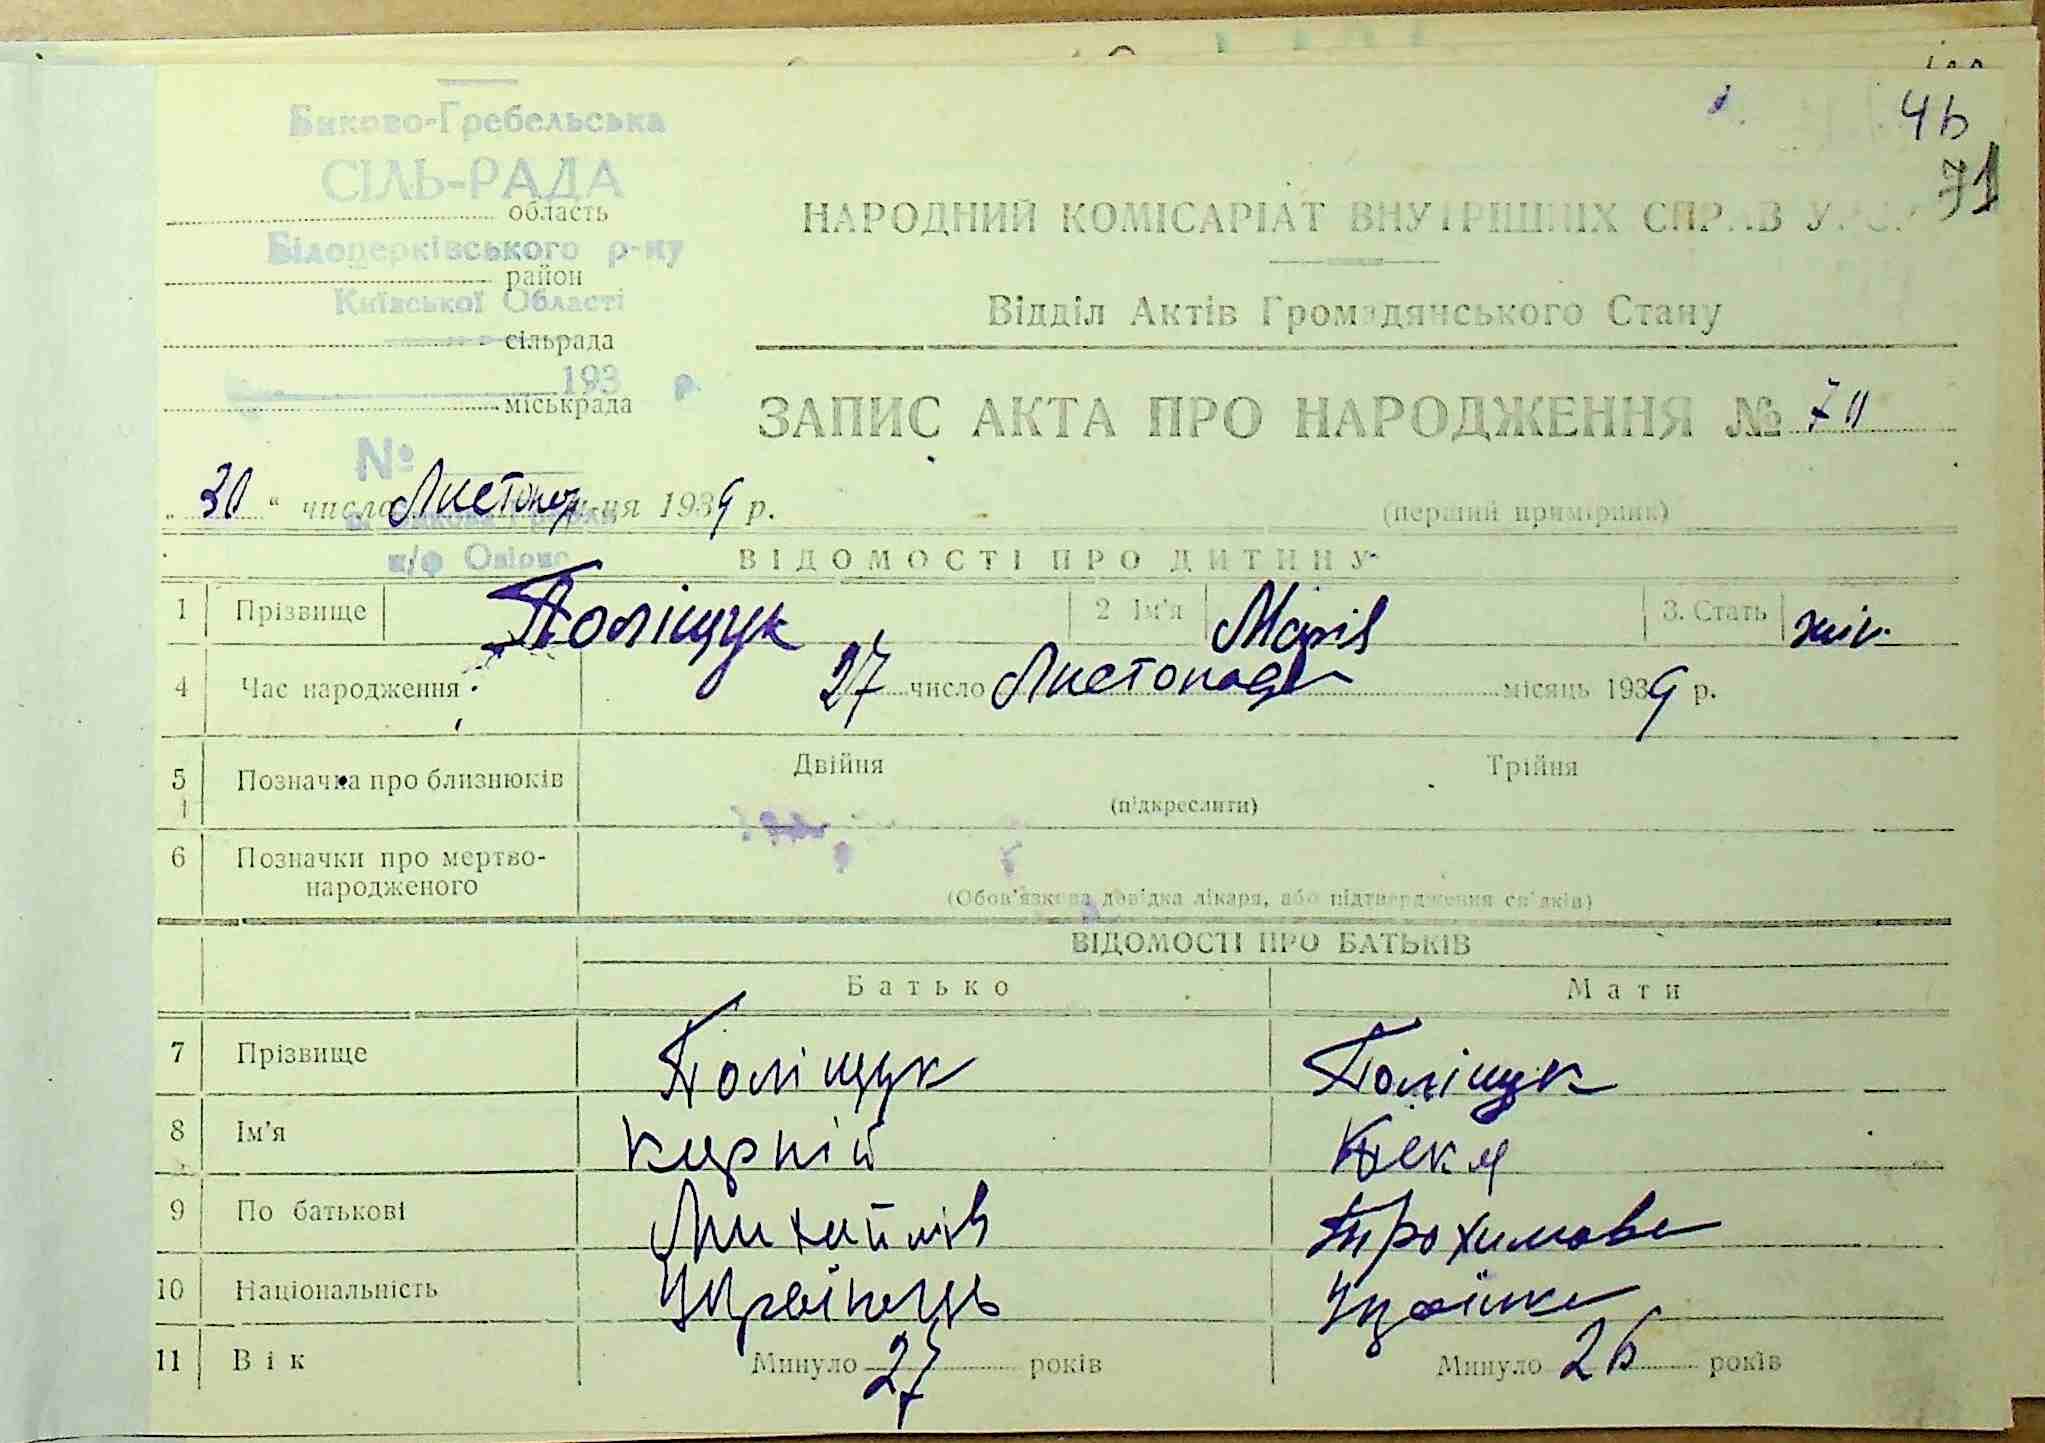 4b
71
Биково-Гребельська
СІЛЬ-РАДА
область
Білоцерківського р-ну
район
Київської Області
сільрада
193 р.
міськрада
№
НАРОДНИЙ КОМІСАРІАТ ВНУТРІШНІХ СПРАВ
Відділ Актів Громадянського Стану
ЗАПИС АКТА ПРО НАРОДЖЕННЯ № 70
„30“ число Листопад м-ця 1939 р.
(перший примірник)
ВІДОМОСТІ ПРО ДИТИНУ
1 Прізвище Поліщук 2 Ім'я Марія 3. Стать жін.
4 Час народження 27 число Листопада місяць 1939 р.
5 Позначка про близнюків Двійня Трійня
(підкреслити)
6 Позначки про мертво-
народженого
(Обов'язкова довідка лікаря, або підтвердження св'дків)
ВІДОМОСТІ ПРО БАТЬКІВ
Батько Мати
7 Прізвище Поліщук Поліщук
8 Ім'я Карпій
9 По батькові Михайлів Трохимова
10 Національність Українець Українка
11 Вік Минуло 27 років Минуло 26 років